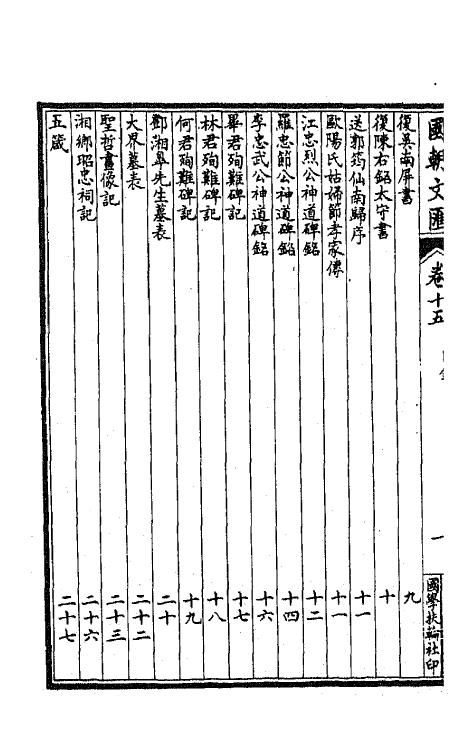 國朝文匯
卷十五
目錄
一
國學扶輪社印
復吳南屏書 九
復陳右銘太守書 十
送郭筠仙南歸序 十一
歐陽氏姑婦節孝家傳 十一
江忠烈公神道碑銘 十二
羅忠節公神道碑銘 十四
李忠武公神道碑銘 十六
畢君殉難碑記 十七
林君殉難碑記 十八
何君殉難碑記 十九
鄧湘皋先生墓表 二十
大界墓表 二十二
聖哲畫像記 二十三
湘鄉昭忠祠記 二十六
五箴 二十七